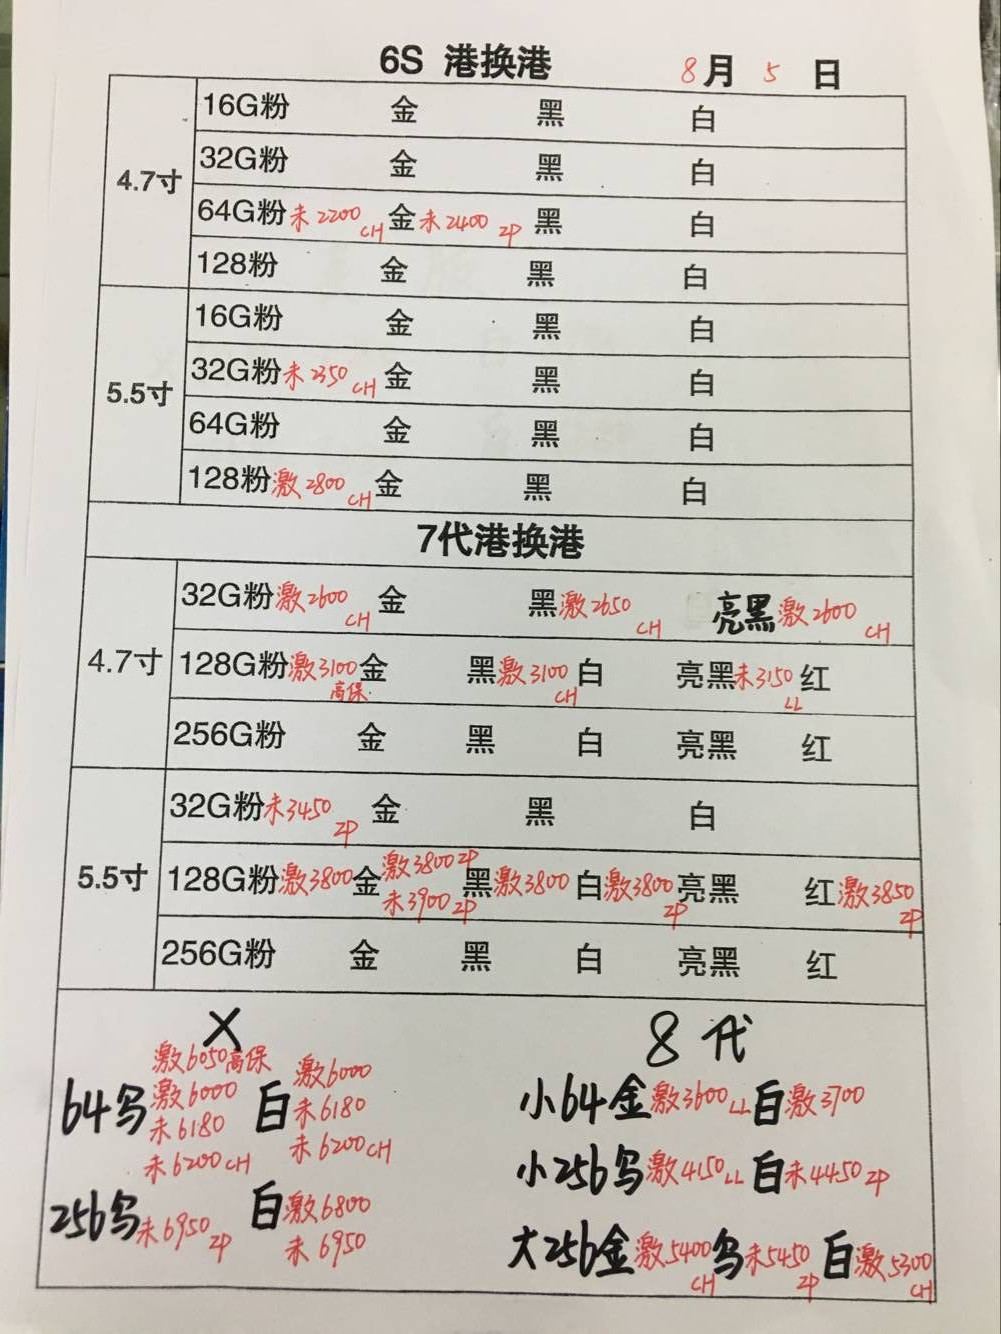 6S 港换港 8月 5 日
4.7寸
16G粉 金 黑 白
32G粉 金 黑 白
64G粉未2200 CH 金未2400 ZP 黑 白
128粉 金 黑 白
5.5寸
16G粉 金 黑 白
32G粉未2350 CH 金 黑 白
64G粉 金 黑 白
128粉激2800 CH 金 黑 白
7代港换港
4.7寸
32G粉激2600 CH 金 黑激2650 CH 亮黑激2600 CH
128G粉激3100 高保 金 黑激3100 CH 白 亮黑未3150 LL 红
256G粉 金 黑 白 亮黑 红
5.5寸
32G粉未3450 ZP 金 黑 白
128G粉激3800 金激3800 ZP 未3900 ZP 黑激3800 白激3800 ZP 亮黑 红激3850 ZP
256G粉 金 黑 白 亮黑 红
X
激6050高保
64乌激6000 白激6000
未6180 未6180
未6200 CH 未6200 CH
256乌未6950 ZP 白激6800
未6950
8代
小64金激3600 LL 白激3700
小256乌激4150 LL 白未4450 ZP
大256金激5400 CH 乌未5450 ZP 白激5300 CH